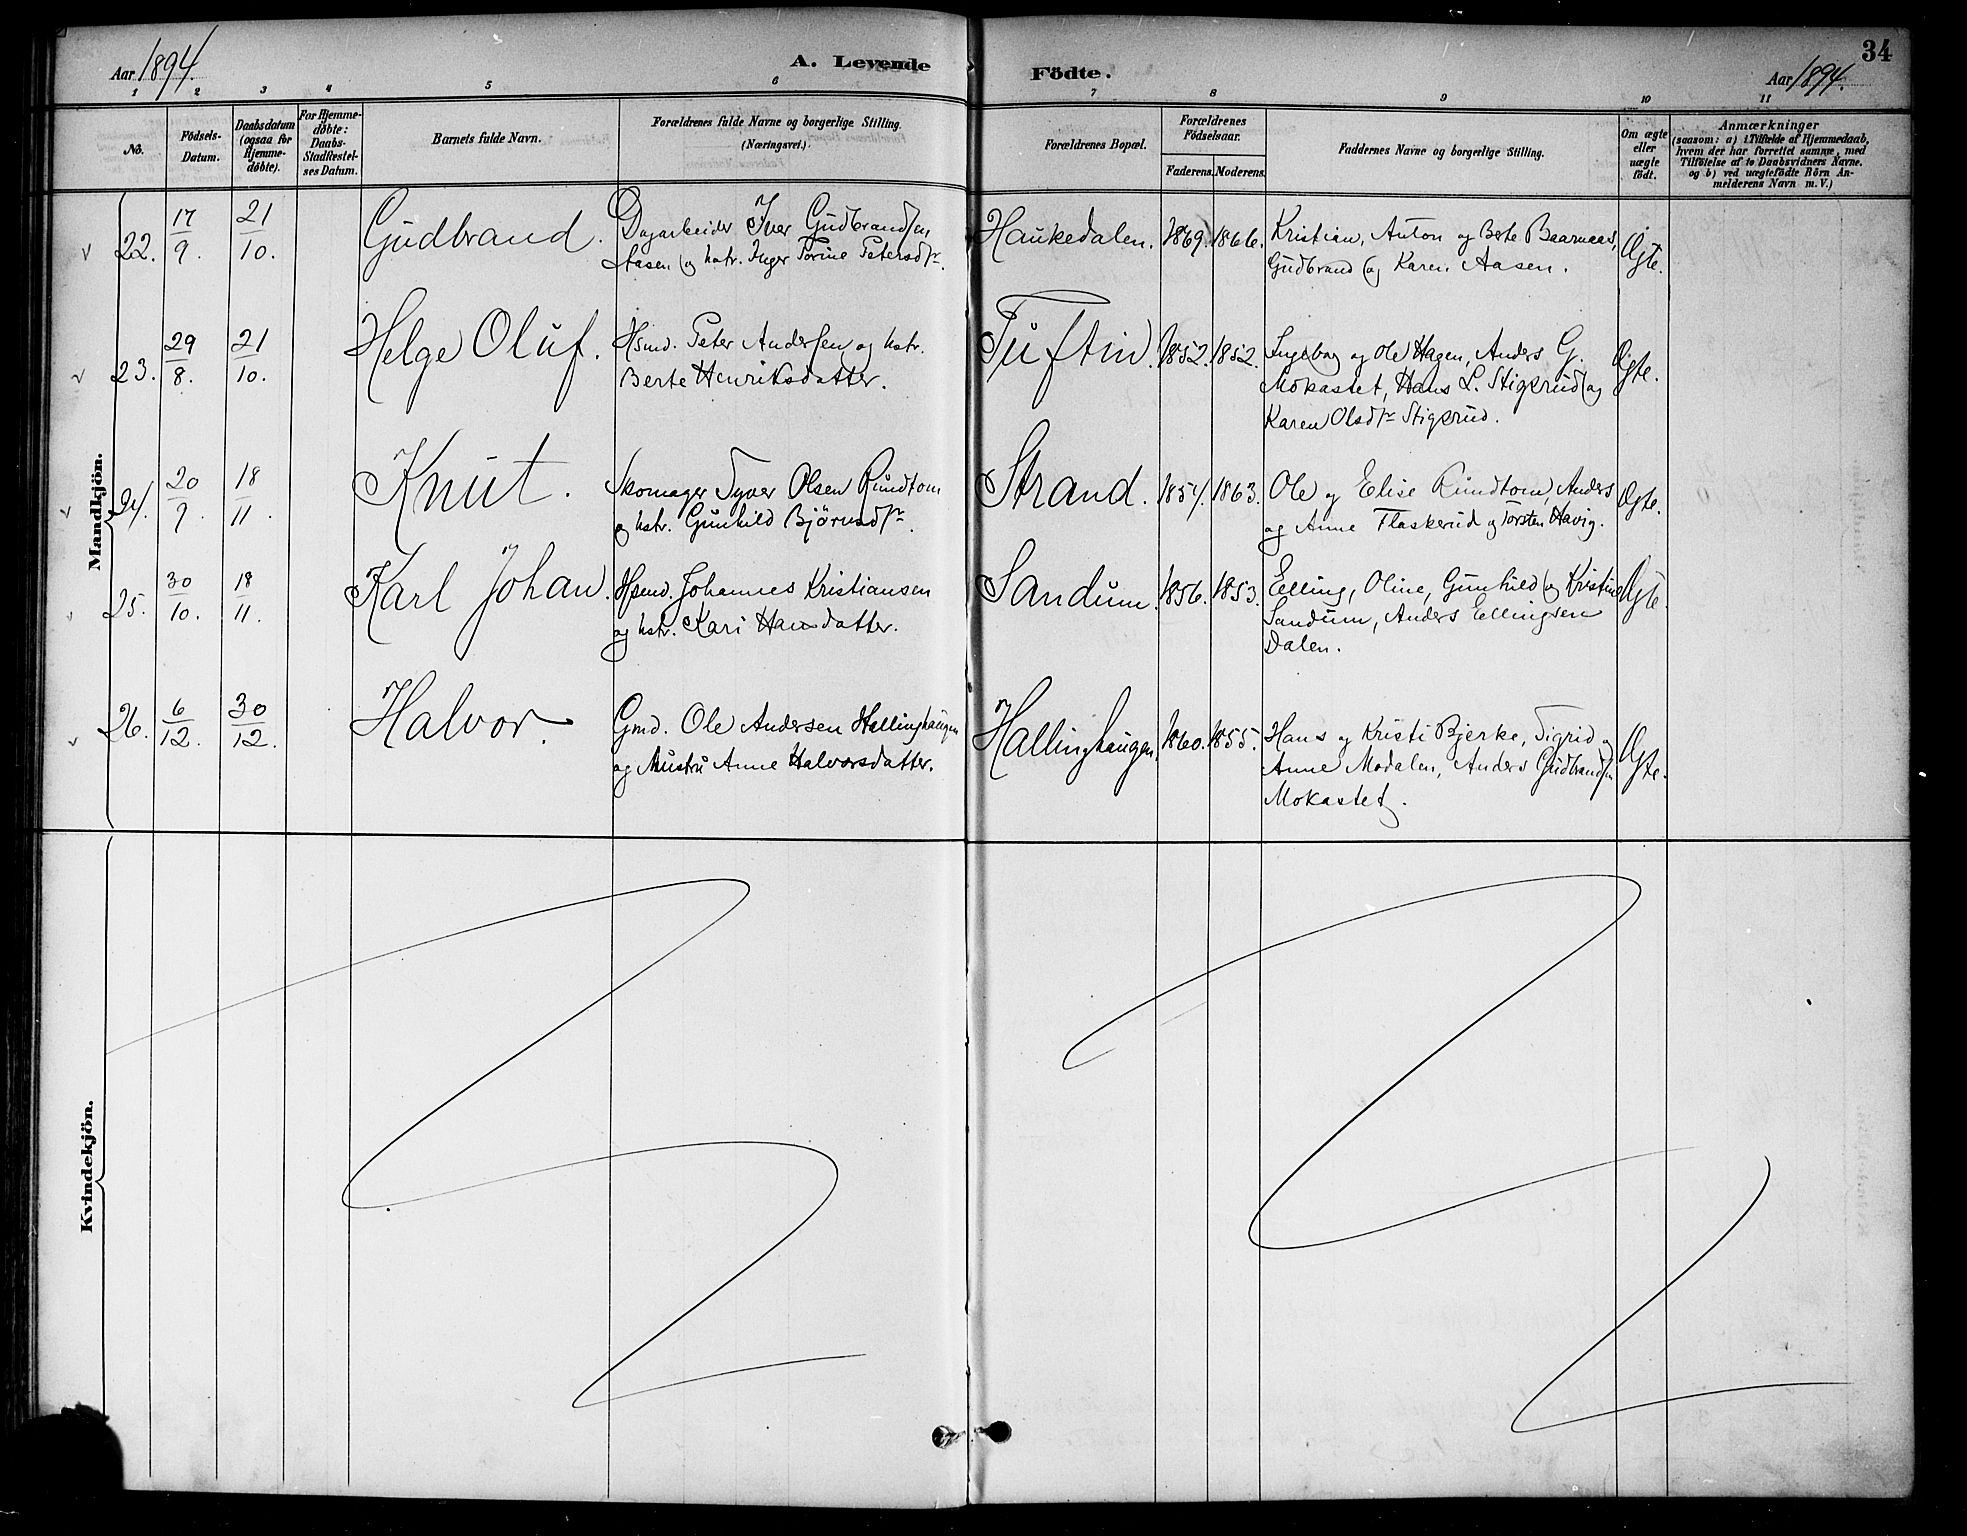 Aar 1894.
A. Levende Födte.
34
Aar 1894.
1 2 3 4 5 6 7 8 9 10 11
No.
Födsels-Datum.
Daabsdatum (ogsaa for Hjemme-døbte).
For Hjemme-døbte: Daabs-Stadfæstel-ses Datum.
Barnets fulde Navn.
Forældrenes fulde Navne og borgerlige Stilling.
(Næringsvei.)
Forældrenes Bopæl.
Forældrenes Födselsaar.
Faderens. Moderens.
Faddernes Navne og borgerlige Stilling.
Om ægte eller uægte födt.
Anmærkninger
(saasom: a) i Tilfælde af Hjemmedaab,
hvem der har forrettet samme, med
Tilföielse af to Daabsvidners Navne.
og b) ved uægtefödte Börn An-
melderens Navn m. V.)
Mandkjön.
22. 17/9. 21/10. Gudbrand. Dagarbeider Iver Gudbrandsen Haukedalen. 1869. 1866. Kristian, Anton og Berte Baarnaas, Ægte.
Aasen og hstr. Inger Torine Petersdtr. Gudbrand og Karen Aasen.
23. 29/8. 21/10. Helge Oluf. Hsmd. Peter Andersen og hstr. Tuftin. 1852. 1852. Ingebor og Ole Hagen, Anders G. Ægte.
Berte Henriksdatter. Mokastet, Hans L. Stigerud og
Karen Olsdtr Stigerud.
24. 20/9. 18/11. Knut. Skomager Syver Olsen Rundtom Strand. 1857. 1863. Ole og Elise Rundtom, Anders Ægte.
og hstr. Gunhild Björnsdtr. og Anne Flaskerud og Torsten Havig.
25. 30/10. 18/11. Karl Johan. Hsmd. Johannes Kristiansen Sandum. 1856. 1853. Elling, Oline, Gunhild og Kristine Ægte.
og hstr. Kari Hansdatter. Sandum, Anders Ellingsen
Dalen.
26. 6/12. 30/12. Halvor. Gmd. Ole Andersen Hallinghaugen Hallinghaugen. 1860. 1855. Hans og Kristi Bjerke, Sigrid og Ægte.
og Hustru Anne Halvorsdatter. Anne Modalen, Anders Gudbrandsen
Mokastet.
Kvindekjön.